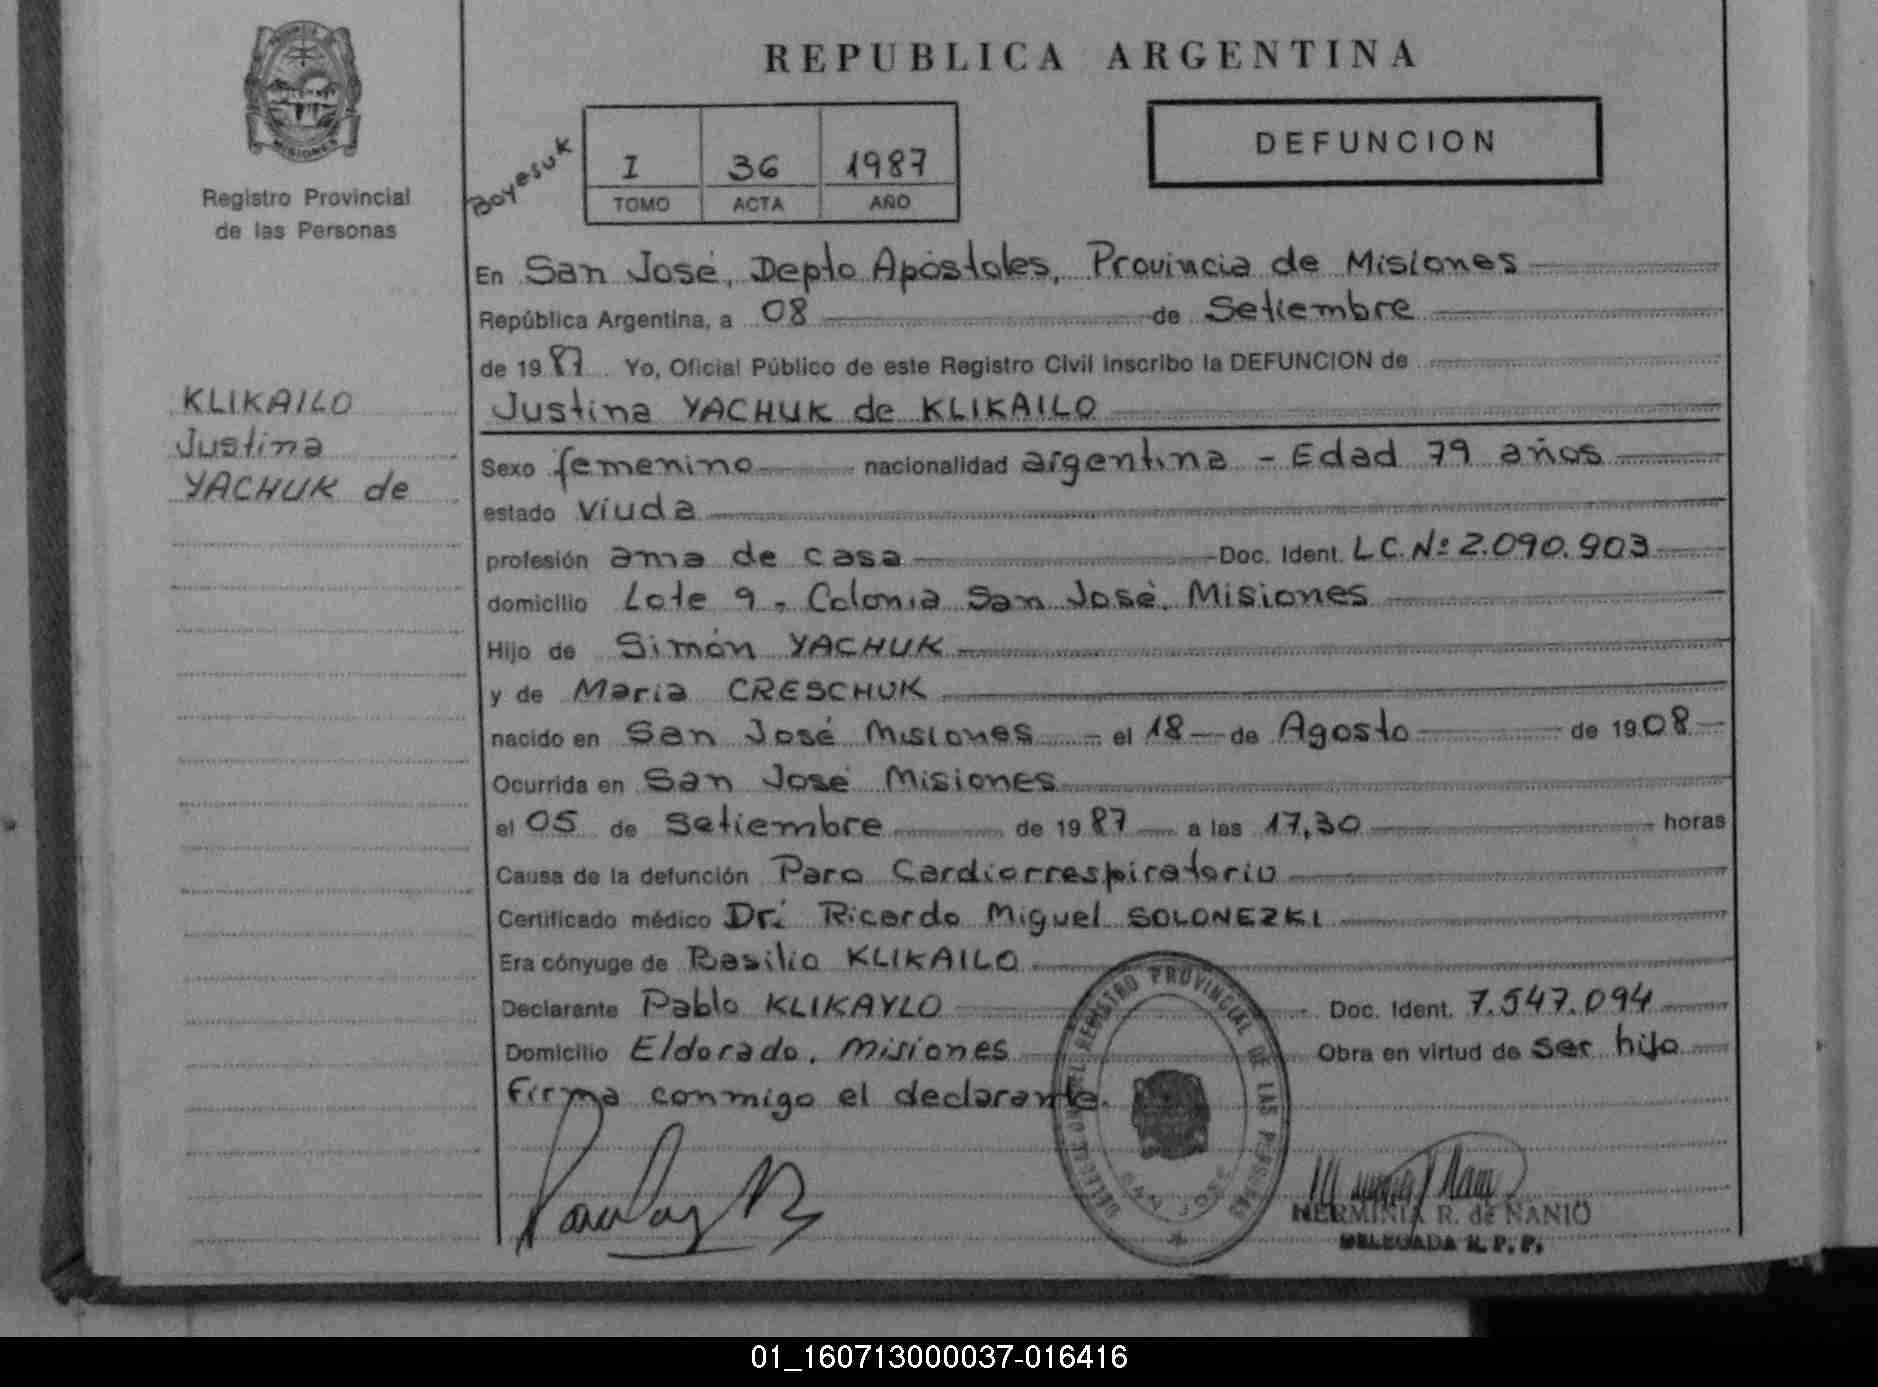 REPUBLICA ARGENTINA
MISIONES
Registro Provincial
de las Personas
Boyesuk
I 36 1987
TOMO ACTA AÑO
DEFUNCION
En San José, Depto Apóstoles, Provincia de Misiones
República Argentina, a 08 de Setiembre
de 1987 Yo, Oficial Público de este Registro Civil inscribo la DEFUNCION de
KLIKAILO
Justina
YACHUK de
Justina YACHUK de KLIKAILO
Sexo femenino nacionalidad argentina - Edad 79 años
estado viuda
profesión ama de casa Doc. Ident. L.C. Nº 2.090.903
domicilio Lote 9, Colonia San José, Misiones
Hijo de Simón YACHUK
y de Maria CRESCHUK
nacido en San José Misiones - el 18 de Agosto de 1908
Ocurrida en San José Misiones
el 05 de Setiembre de 1987 a las 17,30 horas
Causa de la defunción Paro Cardiorrespiratorio
Certificado médico Dr. Ricardo Miguel SOLONEZKI
Era cónyuge de Basilio KLIKAILO
Declarante Pablo KLIKAYLO Doc. Ident. 7.547.094
Domicilio Eldorado, Misiones Obra en virtud de ser hijo
Firma conmigo el declarante.
REGISTRO PROVINCIAL DE LAS PERSONAS
SAN JOSE
HERMINIA R. de NANIO
DELEGADA R. P. P.
01_160713000037-016416